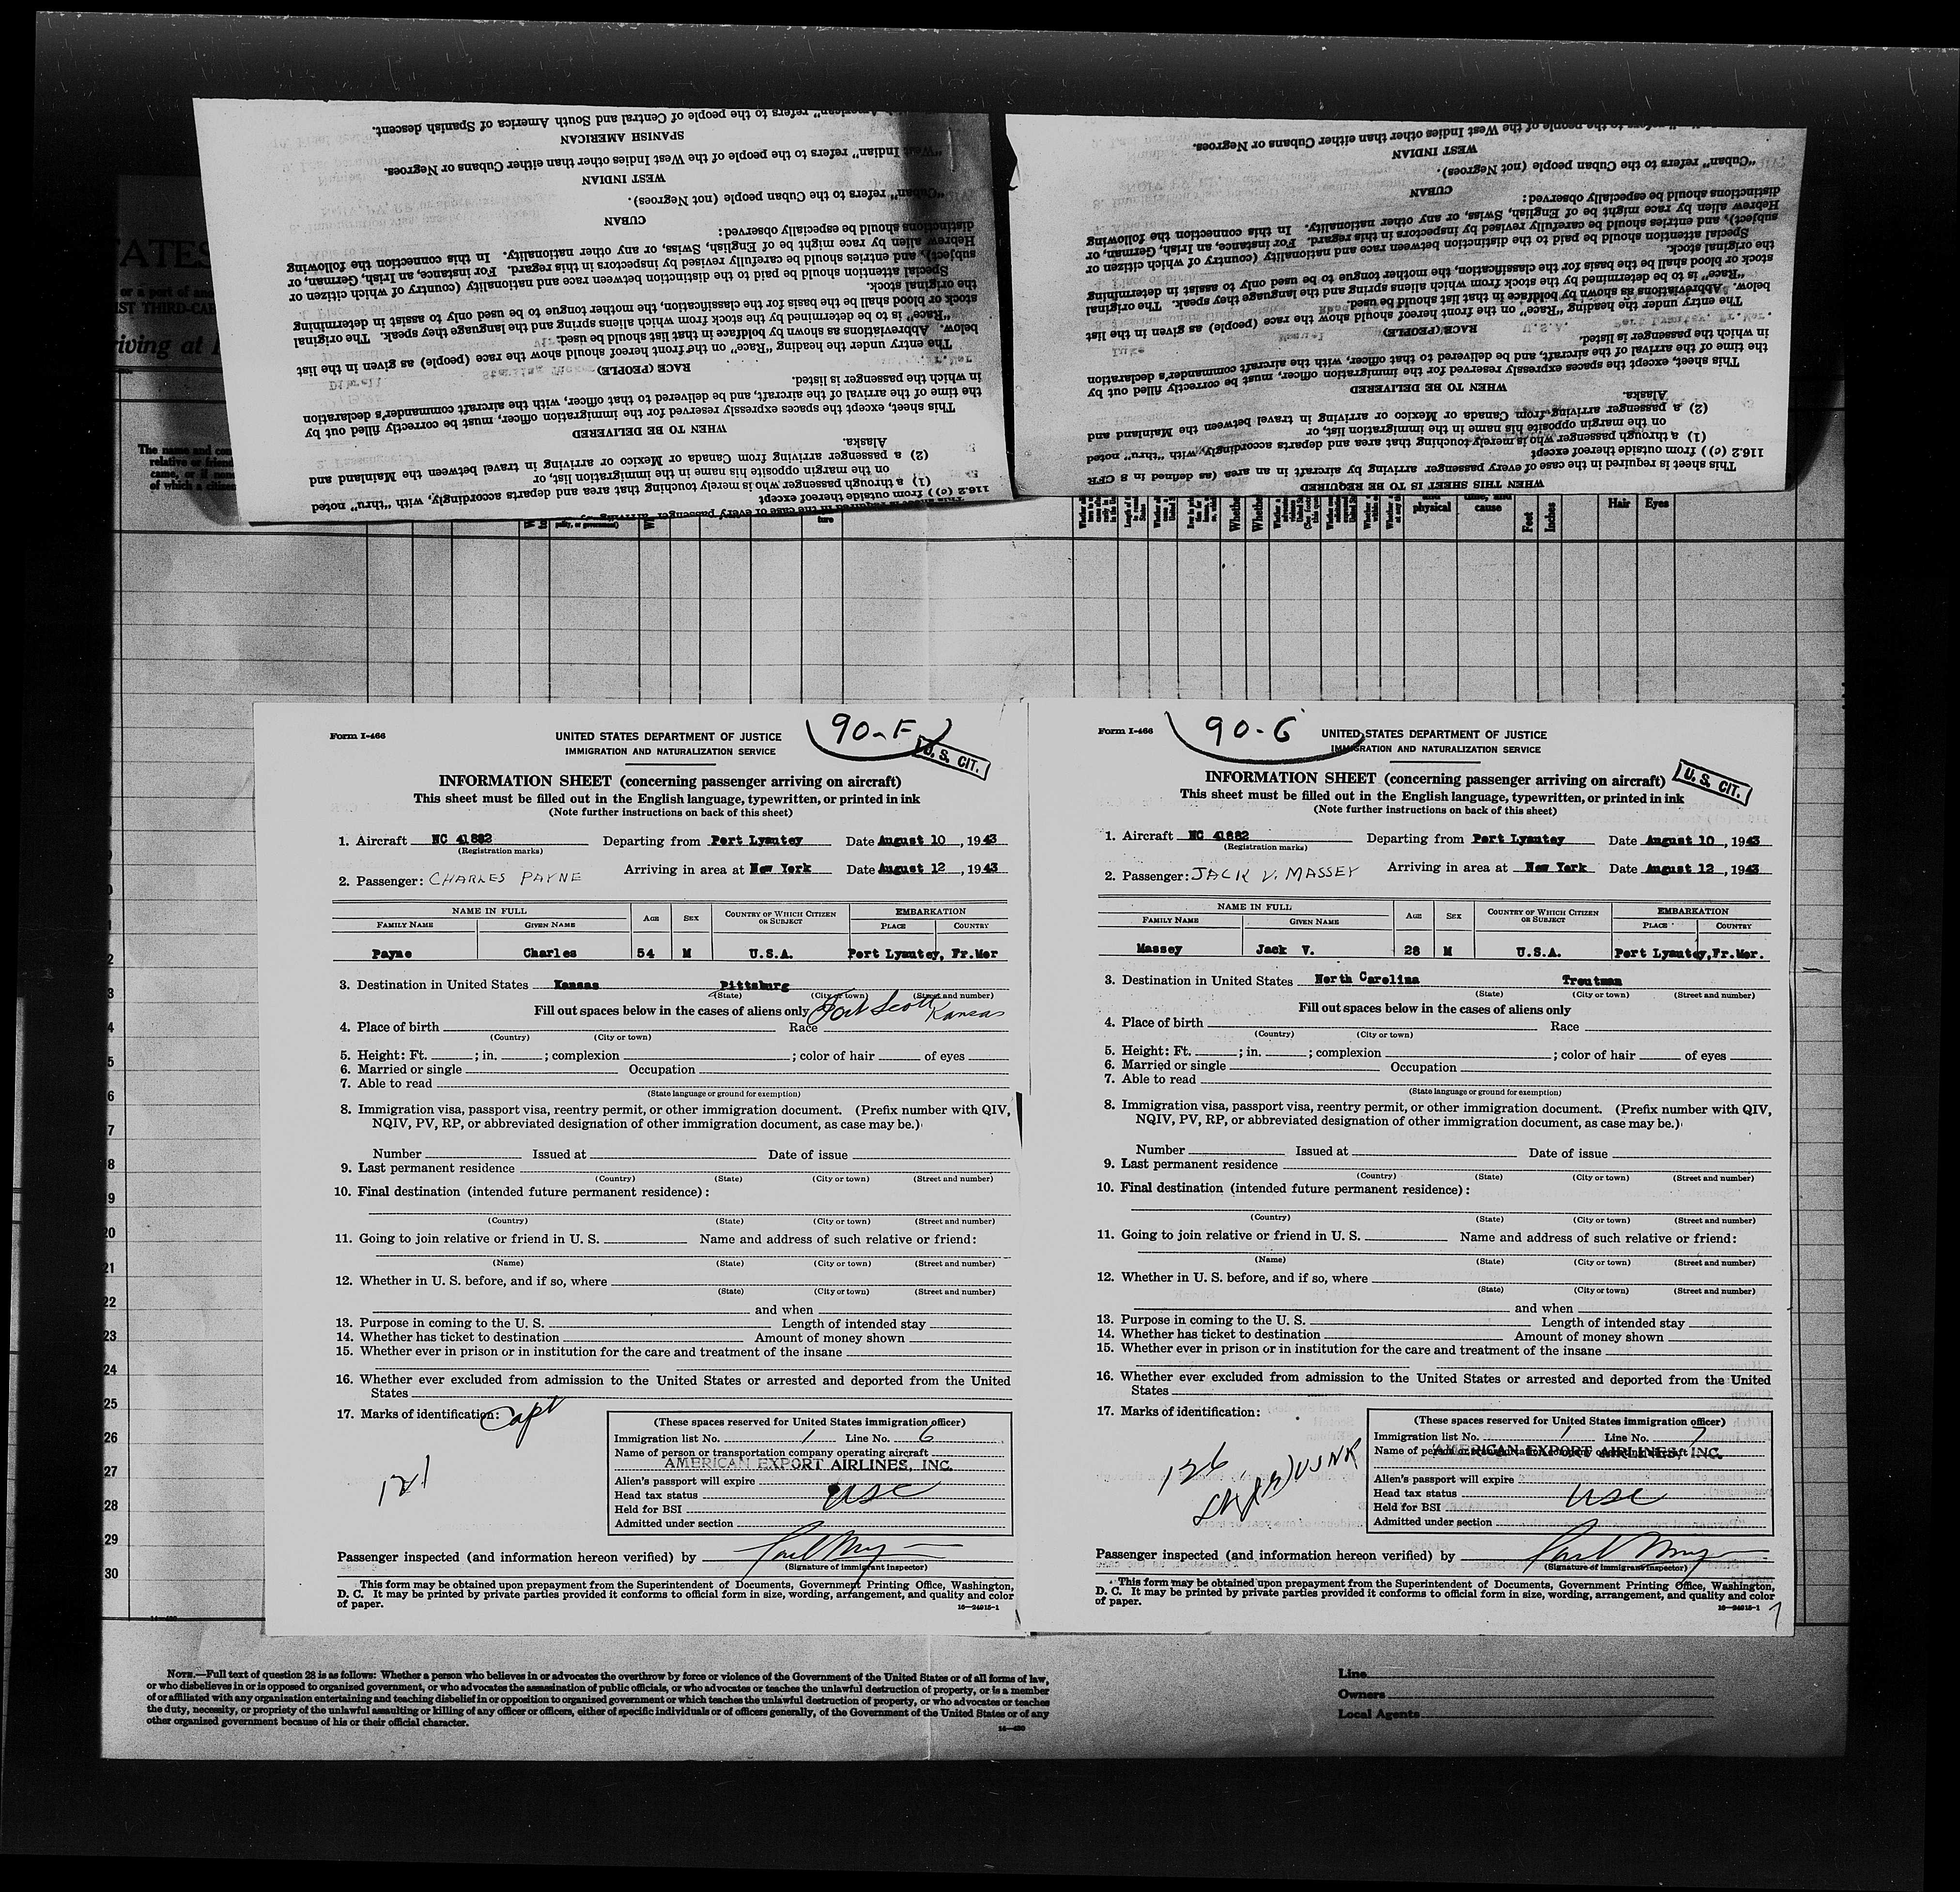 "Spanish American" refers to the people of Central and South America of Spanish descent.
SPANISH AMERICAN
"West Indian" refers to the people of the West Indies other than either Cubans or Negroes.
WEST INDIAN
"Cuban" refers to the Cuban people (not Negroes).
CUBAN
distinctions should be especially observed:
Hebrew alien by race might be of English, Swiss, or any other nationality. In this connection the following
subject), and entries should be carefully revised by inspectors in this regard. For instance, an Irish, German, or
Special attention should be paid to the distinction between race and nationality (country of which citizen or
the original stock.
stock or blood shall be the basis for the classification, the mother tongue to be used only to assist in determining
"Race" is to be determined by the stock from which aliens spring and the language they speak. The original
below. Abbreviations as shown by boldface in that list should be used.
The entry under the heading "Race" on the front hereof should show the race (people) as given in the list
RACE (PEOPLE)
in which the passenger is listed.
the time of the arrival of the aircraft, and be delivered to that officer, with the aircraft commander's declaration
This sheet, except the spaces expressly reserved for the immigration officer, must be correctly filled out by
WHEN TO BE DELIVERED
Alaska.
(2) a passenger arriving from Canada or Mexico or arriving in travel between the Mainland and
on the margin opposite his name in the immigration list, or
(1) a through passenger who is merely touching that area and departs accordingly, with "thru" noted
116.2 (c)) from outside thereof except
"West Indian" refers to the people of the West Indies other than either Cubans or Negroes.
WEST INDIAN
"Cuban" refers to the Cuban people (not Negroes).
CUBAN
distinctions should be especially observed:
Hebrew alien by race might be of English, Swiss, or any other nationality. In this connection the following
subject), and entries should be carefully revised by inspectors in this regard. For instance, an Irish, German, or
Special attention should be paid to the distinction between race and nationality (country of which citizen or
the original stock.
stock or blood shall be the basis for the classification, the mother tongue to be used only to assist in determining
"Race" is to be determined by the stock from which aliens spring and the language they speak. The original
below. Abbreviations as shown by boldface in that list should be used.
The entry under the heading "Race" on the front hereof should show the race (people) as given in the list
RACE (PEOPLE)
in which the passenger is listed.
the time of the arrival of the aircraft, and be delivered to that officer, with the aircraft commander's declaration
This sheet, except the spaces expressly reserved for the immigration officer, must be correctly filled out by
WHEN TO BE DELIVERED
Alaska.
(2) a passenger arriving from Canada or Mexico or arriving in travel between the Mainland and
on the margin opposite his name in the immigration list, or
(1) a through passenger who is merely touching that area and departs accordingly, with "thru" noted
116.2 (c)) from outside thereof except
This sheet is required in the case of every passenger arriving by aircraft in an area (as defined in 8 CFR
WHEN THIS SHEET IS TO BE REQUIRED
physical
cause
Feet
Inches
Hair
Eyes
Form I-466
90-F
UNITED STATES DEPARTMENT OF JUSTICE
IMMIGRATION AND NATURALIZATION SERVICE
U. S. CIT.
INFORMATION SHEET (concerning passenger arriving on aircraft)
This sheet must be filled out in the English language, typewritten, or printed in ink
(Note further instructions on back of this sheet)
1. Aircraft NC 41882 Departing from Port Lyautey Date August 10, 1943
(Registration marks)
Arriving in area at New York Date August 12, 1943
2. Passenger: CHARLES PAYNE
NAME IN FULL AGE SEX COUNTRY OF WHICH CITIZEN OR SUBJECT EMBARKATION
FAMILY NAME GIVEN NAME PLACE COUNTRY
Payne Charles 54 M U.S.A. Port Lyautey, Fr.Mor
3. Destination in United States Kansas Pittsburg
(State) (City or town) (Street and number)
Fill out spaces below in the cases of aliens only
Fort Scott Kansas
4. Place of birth Race
(Country) (City or town)
5. Height: Ft. ; in. ; complexion ; color of hair of eyes
6. Married or single Occupation
7. Able to read
(State language or ground for exemption)
8. Immigration visa, passport visa, reentry permit, or other immigration document. (Prefix number with QIV,
NQIV, PV, RP, or abbreviated designation of other immigration document, as case may be.)
Number Issued at Date of issue
9. Last permanent residence
(Country) (State) (City or town) (Street and number)
10. Final destination (intended future permanent residence):
(Country) (State) (City or town) (Street and number)
11. Going to join relative or friend in U. S. Name and address of such relative or friend:
(Name) (State) (City or town) (Street and number)
12. Whether in U. S. before, and if so, where
(State) (City or town) (Street and number)
and when
13. Purpose in coming to the U. S. Length of intended stay
14. Whether has ticket to destination Amount of money shown
15. Whether ever in prison or in institution for the care and treatment of the insane
16. Whether ever excluded from admission to the United States or arrested and deported from the United
States
17. Marks of identification: Capt
121
(These spaces reserved for United States immigration officer)
Immigration list No. 1 Line No. 6
Name of person or transportation company operating aircraft
AMERICAN EXPORT AIRLINES, INC.
Alien's passport will expire
Head tax status USC
Held for BSI
Admitted under section
Passenger inspected (and information hereon verified) by
(Signature of immigrant inspector)
This form may be obtained upon prepayment from the Superintendent of Documents, Government Printing Office, Washington,
D. C. It may be printed by private parties provided it conforms to official form in size, wording, arrangement, and quality and color
of paper.
16—24915-1
Form I-466
90-G
UNITED STATES DEPARTMENT OF JUSTICE
IMMIGRATION AND NATURALIZATION SERVICE
U. S. CIT.
INFORMATION SHEET (concerning passenger arriving on aircraft)
This sheet must be filled out in the English language, typewritten, or printed in ink
(Note further instructions on back of this sheet)
1. Aircraft NC 41882 Departing from Port Lyautey Date August 10, 1943
(Registration marks)
Arriving in area at New York Date August 12, 1943
2. Passenger: JACK V. MASSEY
NAME IN FULL AGE SEX COUNTRY OF WHICH CITIZEN OR SUBJECT EMBARKATION
FAMILY NAME GIVEN NAME PLACE COUNTRY
Massey Jack V. 28 M U.S.A. Port Lyautey,Fr.Mor.
3. Destination in United States North Carolina Troutman
(State) (City or town) (Street and number)
Fill out spaces below in the cases of aliens only
4. Place of birth Race
(Country) (City or town)
5. Height: Ft. ; in. ; complexion ; color of hair of eyes
6. Married or single Occupation
7. Able to read
(State language or ground for exemption)
8. Immigration visa, passport visa, reentry permit, or other immigration document. (Prefix number with QIV,
NQIV, PV, RP, or abbreviated designation of other immigration document, as case may be.)
Number Issued at Date of issue
9. Last permanent residence
(Country) (State) (City or town) (Street and number)
10. Final destination (intended future permanent residence):
(Country) (State) (City or town) (Street and number)
11. Going to join relative or friend in U. S. Name and address of such relative or friend:
(Name) (State) (City or town) (Street and number)
12. Whether in U. S. before, and if so, where
(State) (City or town) (Street and number)
and when
13. Purpose in coming to the U. S. Length of intended stay
14. Whether has ticket to destination Amount of money shown
15. Whether ever in prison or in institution for the care and treatment of the insane
16. Whether ever excluded from admission to the United States or arrested and deported from the United
States
17. Marks of identification:
126
USNR
(These spaces reserved for United States immigration officer)
Immigration list No. 1 Line No. 7
Name of person or transportation company operating aircraft
AMERICAN EXPORT AIRLINES, INC.
Alien's passport will expire
Head tax status USC
Held for BSI
Admitted under section
Passenger inspected (and information hereon verified) by
(Signature of immigrant inspector)
This form may be obtained upon prepayment from the Superintendent of Documents, Government Printing Office, Washington,
D. C. It may be printed by private parties provided it conforms to official form in size, wording, arrangement, and quality and color
of paper.
16—24915-1
7
NOTE.—Full text of question 28 is as follows: Whether a person who believes in or advocates the overthrow by force or violence of the Government of the United States or of all forms of law,
or who disbelieves in or is opposed to organized government, or who advocates the assassination of public officials, or who advocates or teaches the unlawful destruction of property, or is a member
of or affiliated with any organization entertaining and teaching disbelief in or opposition to organized government or which teaches the unlawful destruction of property, or who advocates or teaches
the duty, necessity, or propriety of the unlawful assaulting or killing of any officer or officers, either of specific individuals or of officers generally, of the Government of the United States or of any
other organized government because of his or their official character.
14—430
Line
Owners
Local Agents